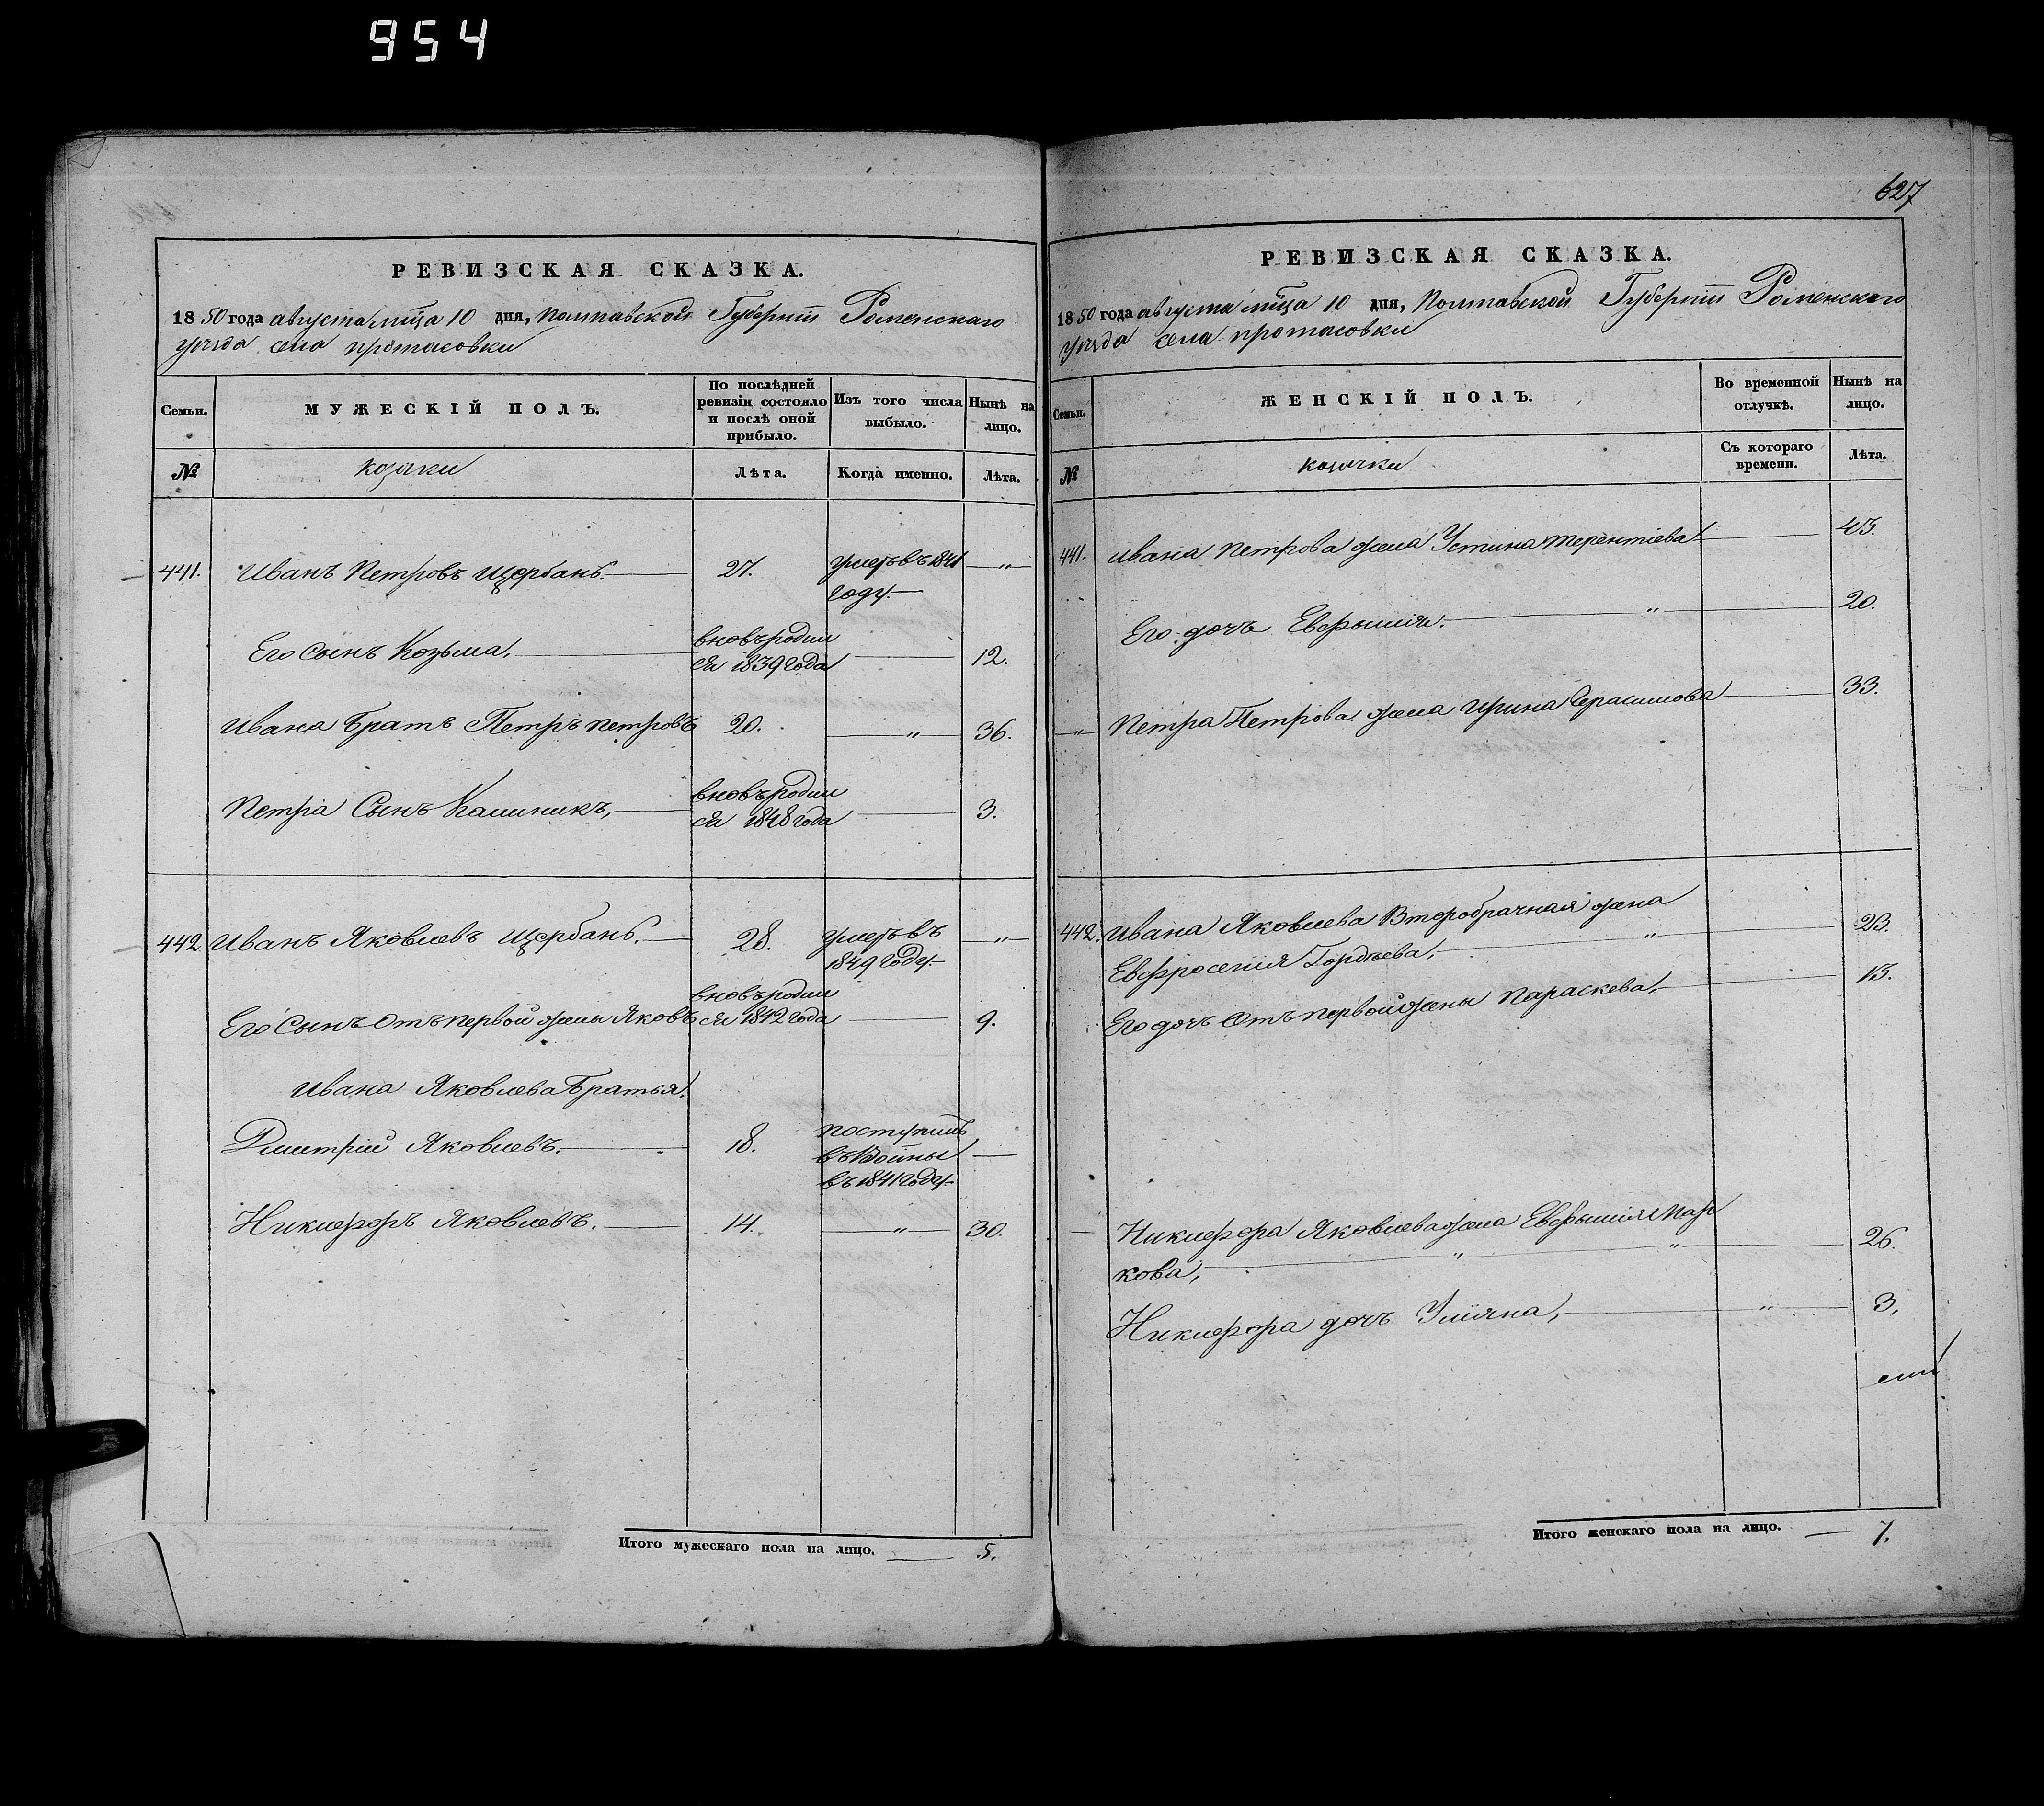 954
РЕВИЗСКАЯ СКАЗКА.
1850 года августа мѣца 10 дня, Полтавской Губерніи Роменскаго
уѣзда села Протасовки
Семьи.
МУЖЕСКІЙ ПОЛЪ.
По послѣдней ревизіи состояло и послѣ оной прибыло.
Изъ того числа выбыло.
Нынѣ на лицо.
№
козаки
Лѣта.
Когда именно.
Лѣта.
441. Иванъ Петровъ Щербань. 27. умеръ въ 1841 „
году.
Его Сынъ Козьма, вновь родил
ся 1839 года 12.
Ивана Братъ Петръ Петровъ 20. „ 36.
Петра Сынъ Калиникъ, вновь родил
ся 1848 года 3.
442. Иванъ Яковлевъ Щербань. 28. умеръ въ „
1849 году.
вновь родил
Его Сынъ отъ первой жены Яковъ ся 1842 года 9.
Ивана Яковлева Братья.
Дмитрій Яковлевъ. 18. поступилъ
въ
въ 1841 году.
Никифоръ Яковлевъ. 14. „ 30.
Итого мужескаго пола на лицо. 5.
627
РЕВИЗСКАЯ СКАЗКА.
1850 года августа мѣца 10 дня, Полтавской Губерніи Роменскаго
уѣзда села Протасовки
Семьи.
ЖЕНСКІЙ ПОЛЪ.
Во временной отлучкѣ.
Нынѣ на лицо.
№
козачки
Съ котораго времени.
Лѣта.
441. Ивана Петрова жена Устина Терентіева 43.
Его дочь Евфимія. „ 20.
„ Петра Петрова жена Ирина Герасимова 33.
442. Ивана Яковлева Второбрачная жена
Евфросенія Гордѣева, „ 23.
Его дочь отъ первой жены Параскева, 13.
Никифора Яковлева жена Евфимія Мар
кова, „ „ 26.
Никифора дочь Уліяна, „ 3,
Итого женскаго пола на лицо. 7.